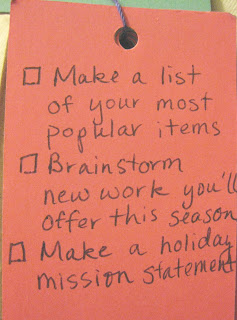 Make a list
of your most
popular items
Brainstorm
new work you'll
offer this season
Make a holiday
mission statement